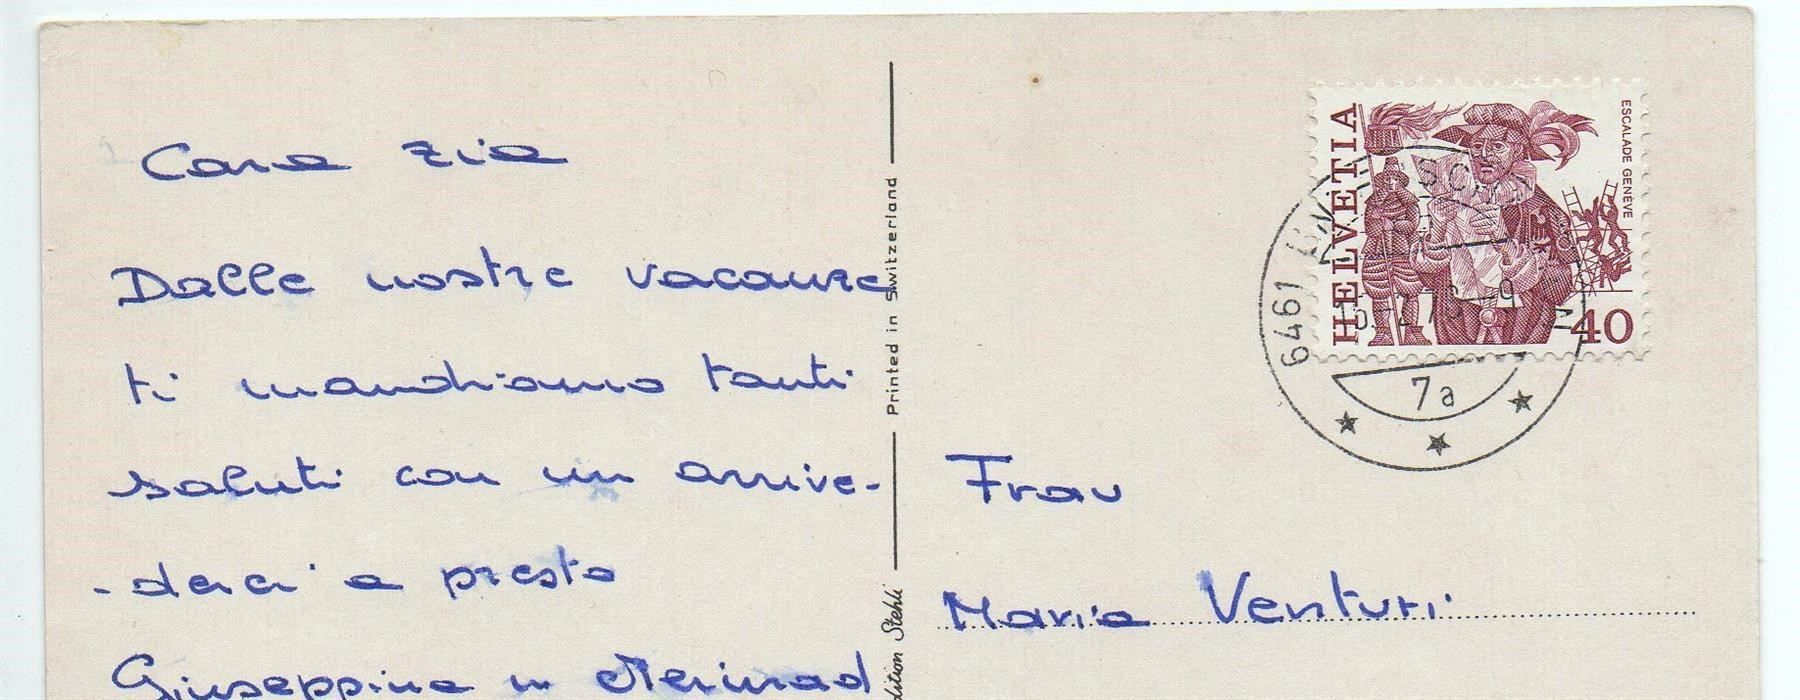 Cara zia
Dalle nostre vacanze
ti mandiamo tanti
saluti con un arrive-
-derci a presto
Giuseppina
Printed in Switzerland
Edition Stehli
HELVETIA
ESCALADE GENÈVE
40
6461
7a
Frau
Maria Venturi